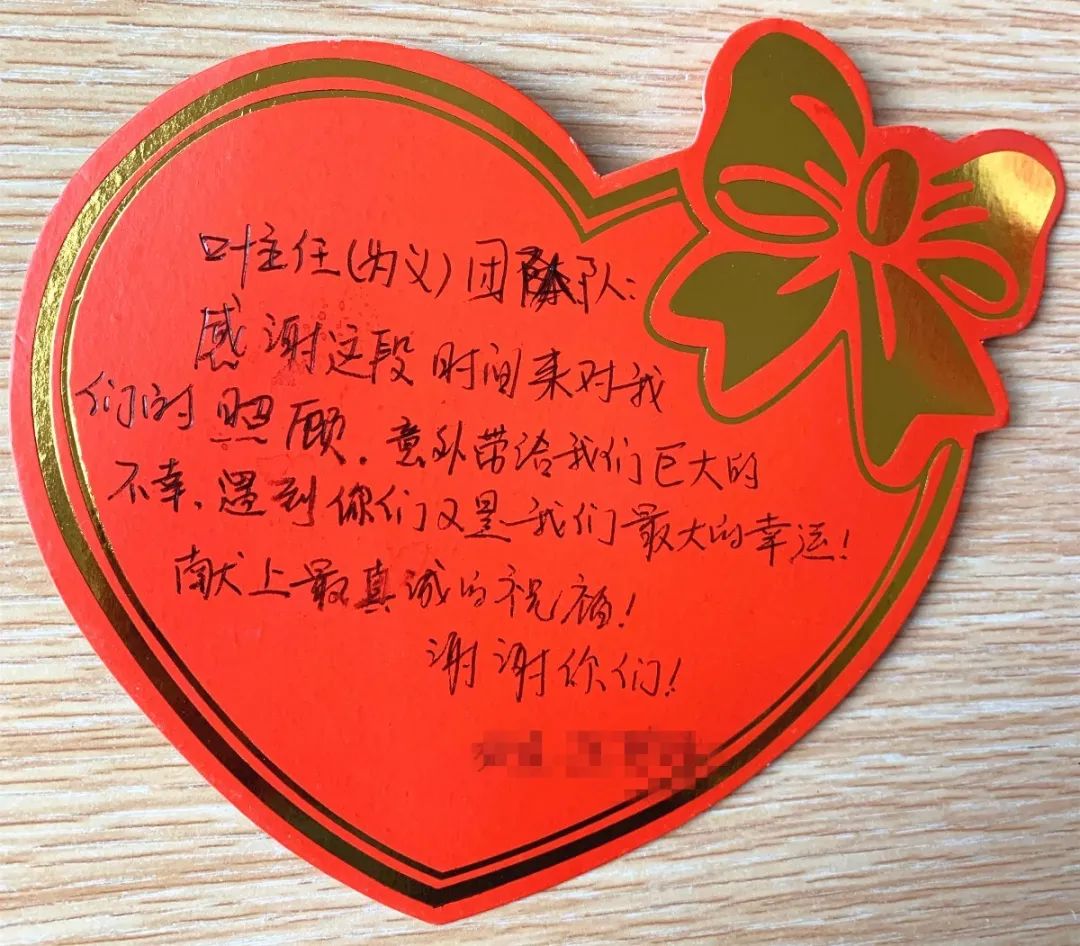 叶主任(为义)团队:
感谢这段时间来对我
们的照顾.意外带给我们巨大的
不幸,遇到你们又是我们最大的幸运!
献上最真诚的祝福!
谢谢你们!